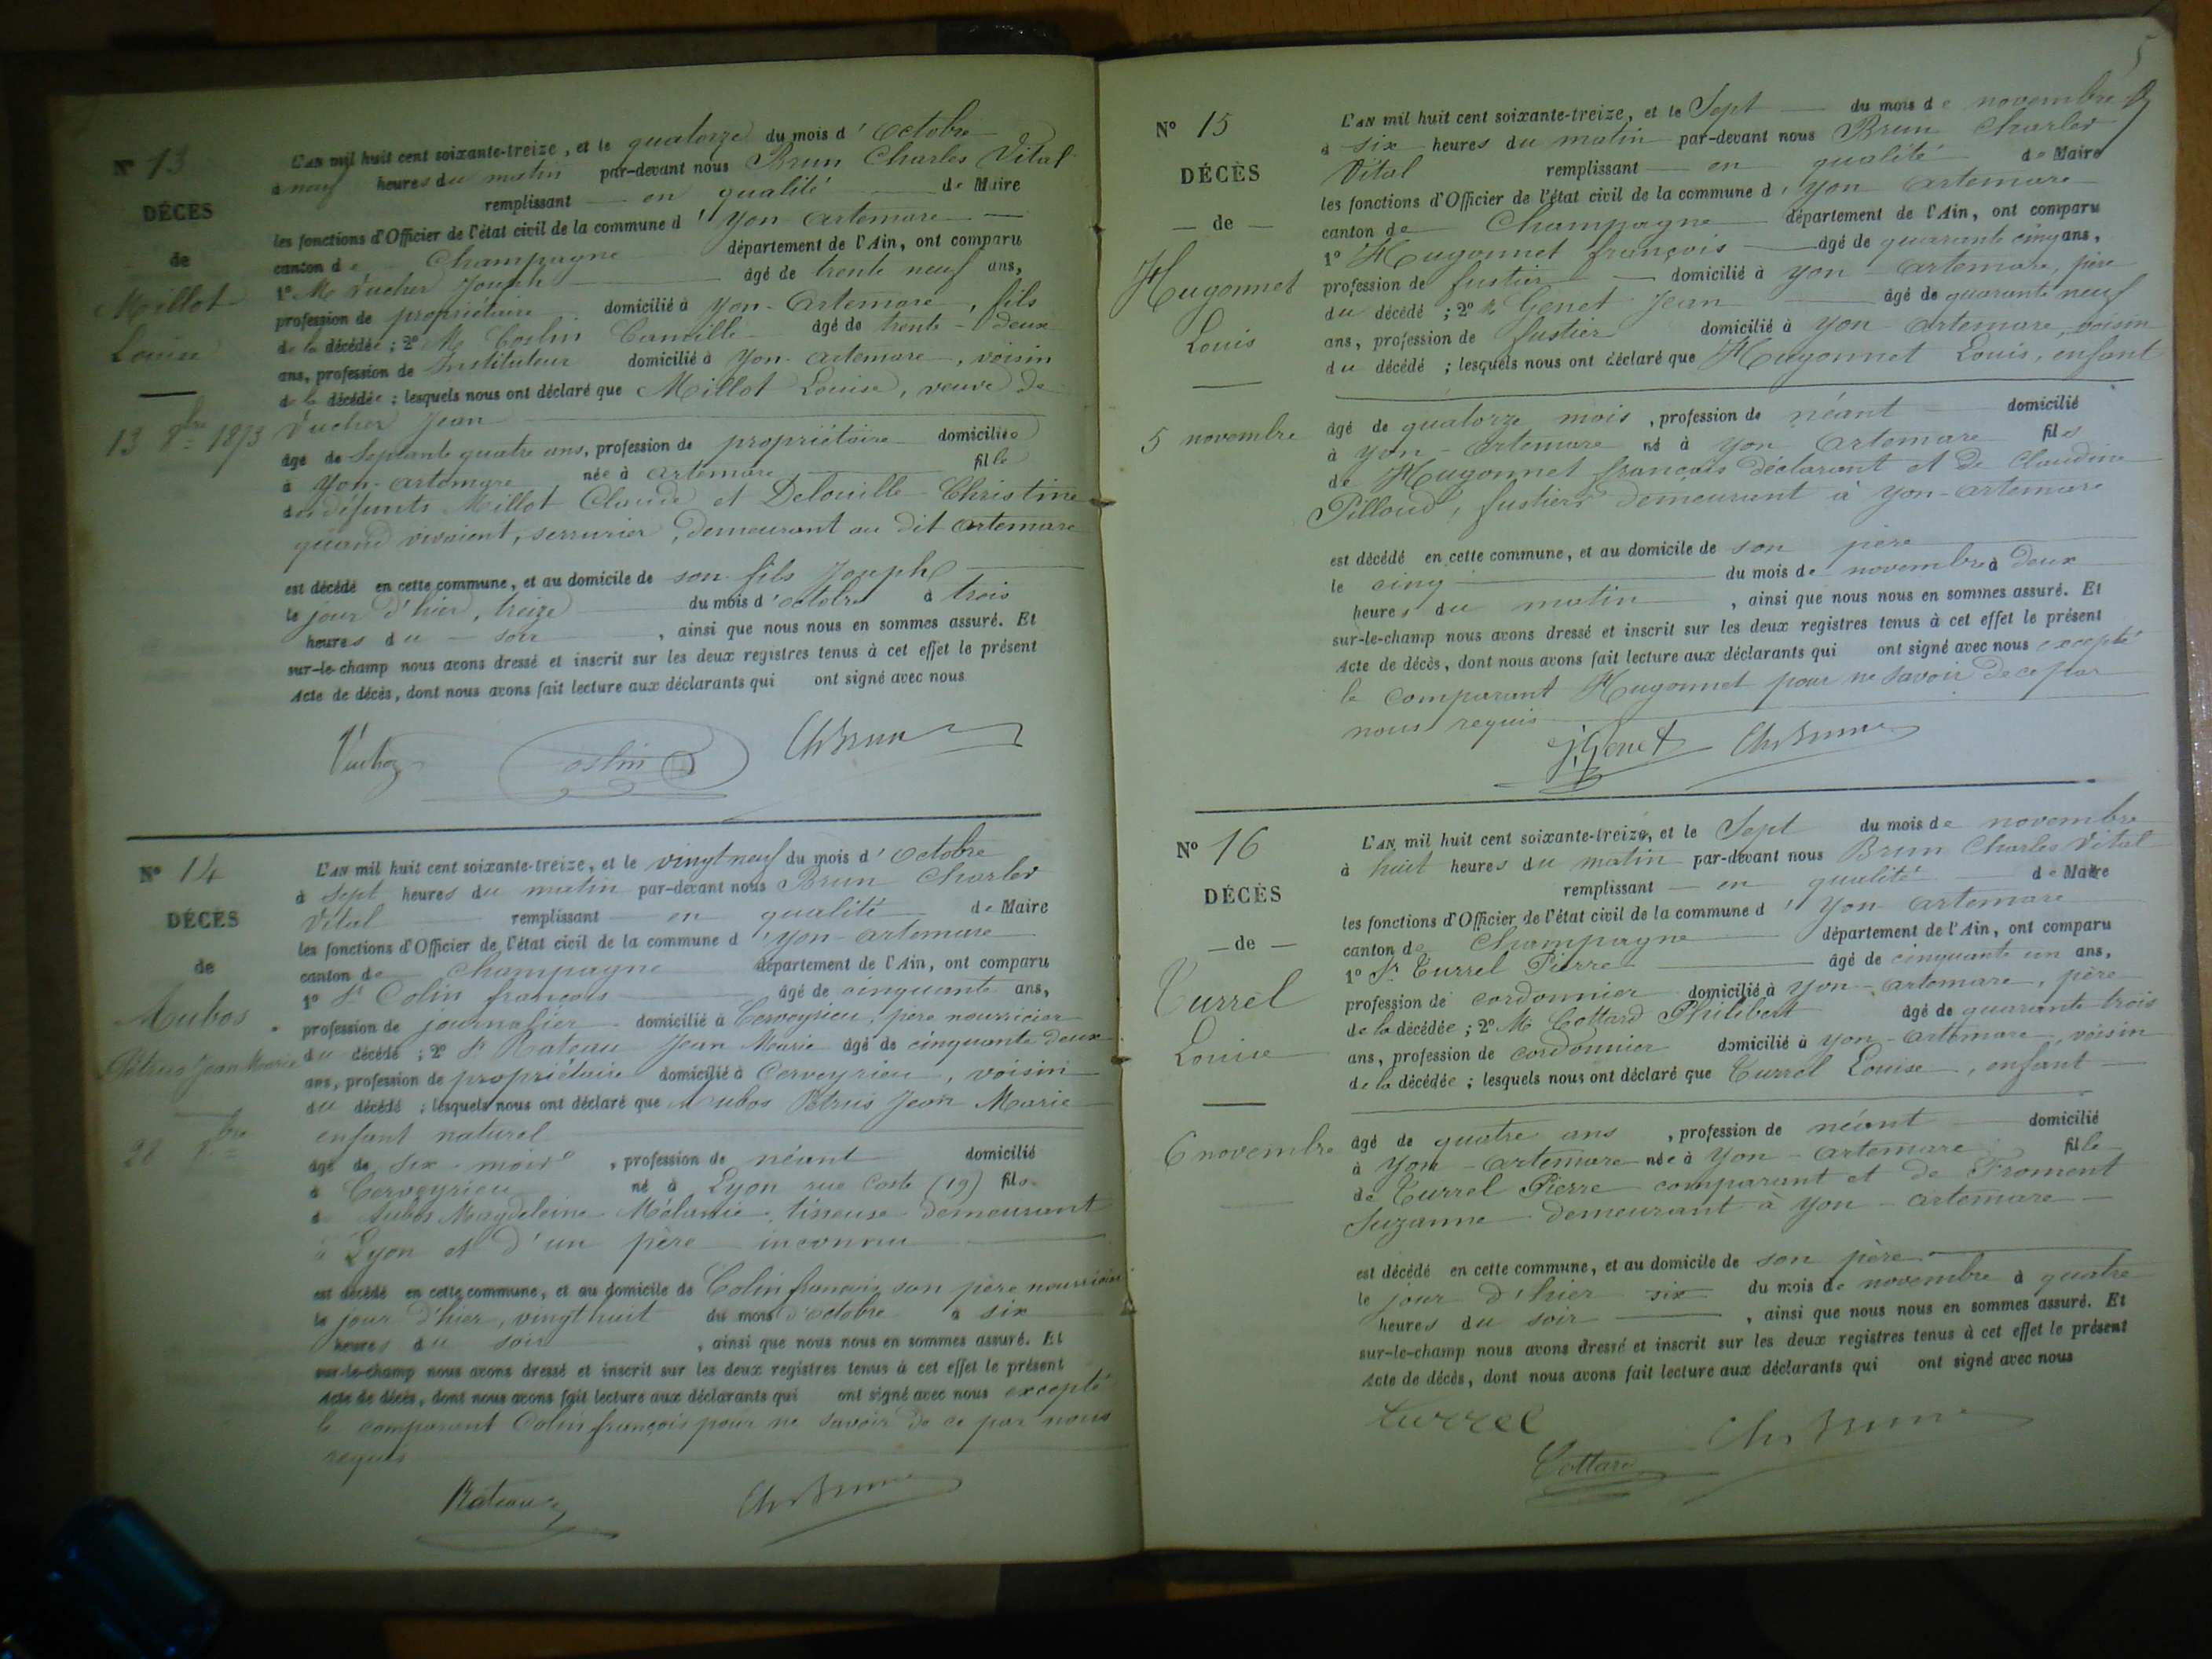 N° 13
DÉCÈS
de
Millot
Louise
13 8bre 1873
L'AN mil huit cent soixante-treize, et le quatorze du mois d'octobre
à neuf heures du matin par-devant nous Brun Charles Vital
remplissant en qualité de Maire
les fonctions d'Officier de l'état civil de la commune d'yon-artemare
canton de Champagne département de l'Ain, ont comparu
1° Mr Vucher Joseph âgé de trente neuf ans,
profession de propriétaire domicilié à yon-artemare, fils
de la décédée ; 2° Mr Coslin Camille âgé de trente-deux
ans, profession de Instituteur domicilié à yon-artemare, voisin
de la décédée ; lesquels nous ont déclaré que Millot Louise, veuve de
Vucher Jean
âgé de Septante quatre ans, profession de propriétaire domiciliée
à yon-artemare née à artemare fille
des défunts Millot Claude et Delouille Christine
quand vivaient, serrurier, demeurant au dit artemare
est décédé en cette commune, et au domicile de son fils Joseph
le jour d'hier, treize du mois d'octobre à trois
heures du soir, ainsi que nous nous en sommes assuré. Et
sur-le-champ nous avons dressé et inscrit sur les deux registres tenus à cet effet le présent
Acte de décès, dont nous avons fait lecture aux déclarants qui ont signé avec nous
Coslin Ch Brun
N° 14
DÉCÈS
de
Aubos
Pétrus Jean Marie
28 8bre
L'AN mil huit cent soixante-treize, et le vingt neuf du mois d'octobre
à Sept heures du matin par-devant nous Brun Charles
Vital remplissant en qualité de Maire
les fonctions d'Officier de l'état civil de la commune d'yon-artemare
canton de Champagne département de l'Ain, ont comparu
1° Sr Colin françois âgé de cinquante ans,
profession de journalier domicilié à Cerveyrieu, père nourricier
du décédé ; 2° Sr Rateau Jean Marie âgé de cinquante deux
ans, profession de propriétaire domicilié à Cerveyrieu, voisin
du décédé ; lesquels nous ont déclaré que Aubos Pétrus Jean Marie
enfant naturel
âgé de six mois, profession de néant domicilié
à Cerveyrieu né à Lyon rue Coste (19) fils
de Aubos Magdeleine Mélanie, tisseuse demeurant
à Lyon et d'un père inconnu
est décédé en cette commune, et au domicile de Colin françois son père nourricier
le jour d'hier, vingt huit du mois d'octobre à six
heures du soir, ainsi que nous nous en sommes assuré. Et
sur-le-champ nous avons dressé et inscrit sur les deux registres tenus à cet effet le présent
Acte de décès, dont nous avons fait lecture aux déclarants qui ont signé avec nous excepté
le comparant Colin françois pour ne savoir de ce par nous
requis
Rateau Ch Brun
5
N° 15
DÉCÈS
— de —
Hugonnet
Louis
5 novembre
L'AN mil huit cent soixante-treize, et le Sept du mois de novembre
à six heures du matin par-devant nous Brun Charles
Vital remplissant en qualité de Maire
les fonctions d'Officier de l'état civil de la commune d'yon artemare
canton de Champagne département de l'Ain, ont comparu
1° Hugonnet françois âgé de quarante cinq ans,
profession de fustier domicilié à yon-artemare, père
du décédé ; 2° Genet Jean âgé de quarante neuf
ans, profession de fustier domicilié à yon artemare, voisin
du décédé ; lesquels nous ont déclaré que Hugonnet Louis, enfant
âgé de quatorze mois, profession de néant domicilié
à yon-artemare né à yon artemare fils
de Hugonnet françois déclarant et de Claudine
Pilloud, fustiers demeurant à yon-artemare
est décédé en cette commune, et au domicile de son père
le cinq du mois de novembre à deux
heures du matin, ainsi que nous nous en sommes assuré. Et
sur-le-champ nous avons dressé et inscrit sur les deux registres tenus à cet effet le présent
Acte de décès, dont nous avons fait lecture aux déclarants qui ont signé avec nous excepté
le comparant Hugonnet pour ne savoir de ce par
nous requis
J. Genet Ch Brun
N° 16
DÉCÈS
— de —
Turrel
Louise
6 novembre
L'AN mil huit cent soixante-treize, et le Sept du mois de novembre
à huit heures du matin par-devant nous Brun Charles Vital
remplissant en qualité de Maire
les fonctions d'Officier de l'état civil de la commune d'yon artemare
canton de Champagne département de l'Ain, ont comparu
1° Sr Turrel Pierre âgé de cinquante un ans,
profession de cordonnier domicilié à yon-artemare, père
de la décédée ; 2° Mr Cottard Philibert âgé de quarante trois
ans, profession de cordonnier domicilié à yon-artemare, voisin
de la décédée ; lesquels nous ont déclaré que Turrel Louise, enfant
âgé de quatre ans, profession de néant domicilié
à yon-artemare née à yon-artemare fille
de Turrel Pierre comparant et de Froment
Suzanne demeurant à yon-artemare
est décédé en cette commune, et au domicile de son père
le jour d'hier six du mois de novembre à quatre
heures du soir, ainsi que nous nous en sommes assuré. Et
sur-le-champ nous avons dressé et inscrit sur les deux registres tenus à cet effet le présent
Acte de décès, dont nous avons fait lecture aux déclarants qui ont signé avec nous
turrel
Cottard Ch Brun